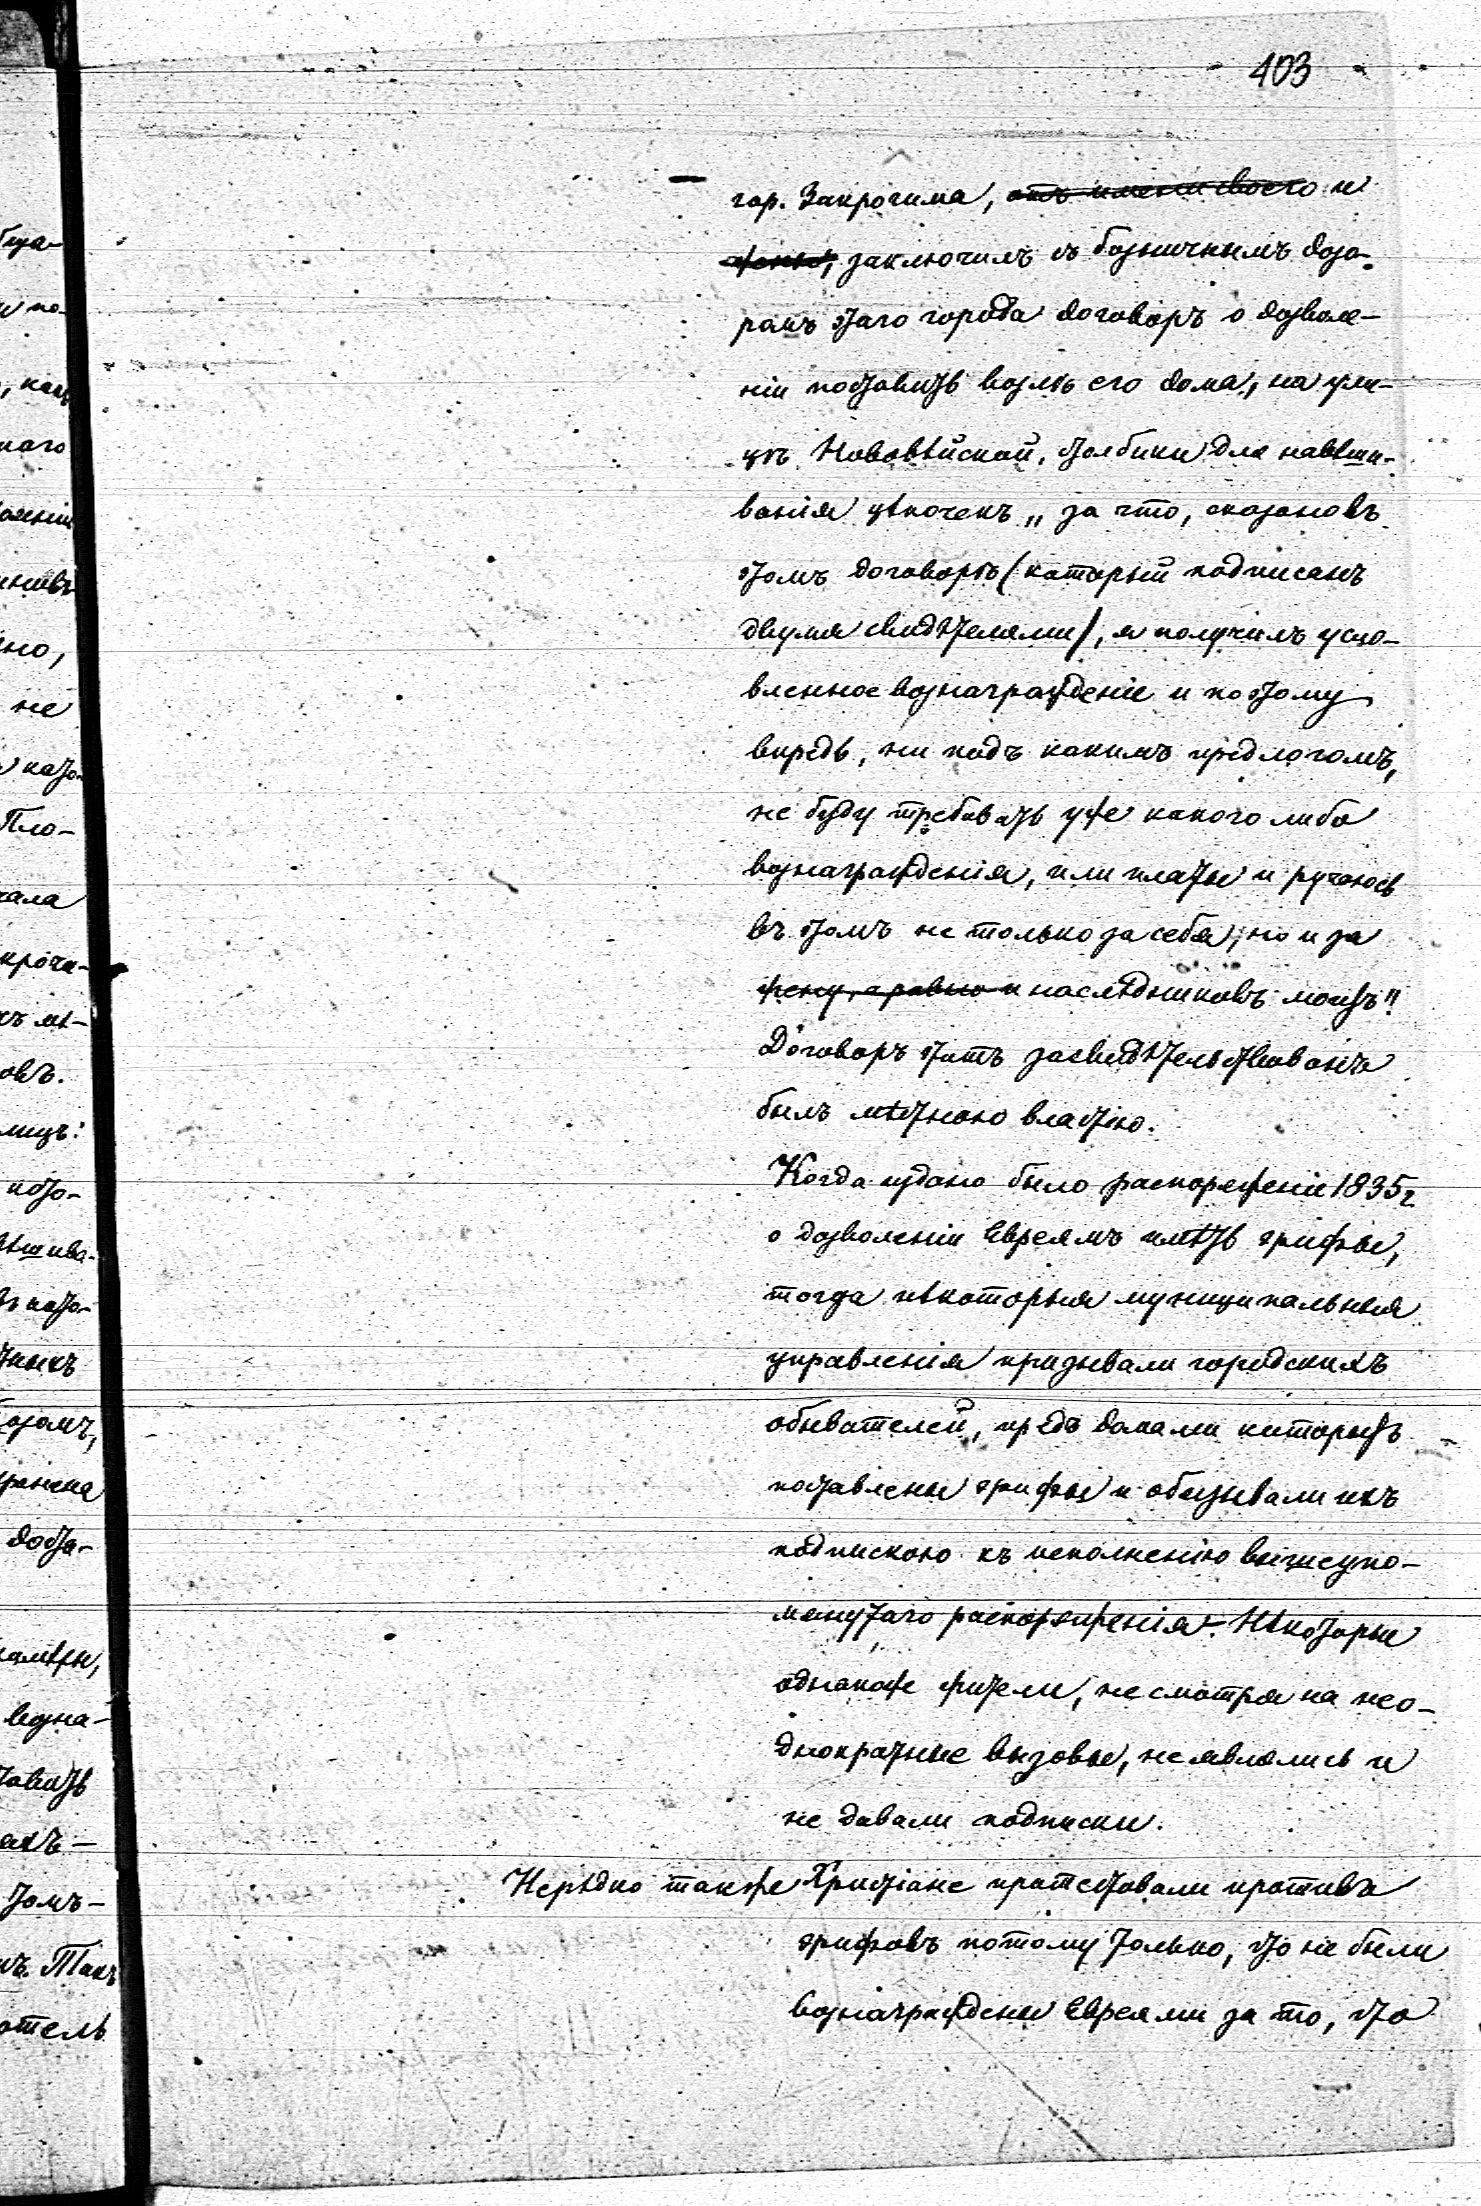 403
гор. Закрочима, отъ имени своего и
жены, заключилъ съ божничнымъ дозо-
ромъ этаго города договоръ о дозволе-
ніи поставить возлѣ его дома, на ули-
цѣ Нововѣйской, столбики для навѣши-
ванія цѣпочекъ „ за что, сказано въ
этомъ договорѣ (который подписанъ
двумя свидѣтелями), я получилъ усло-
вленное вознагражденіе и поэтому
впредь, ни подъ какимъ предлогомъ,
не буду требовать уже какого либо
вознагражденія, или платы и ручаюсь
въ этомъ не только за себя, но и за
жену, а равно и наслѣдниковъ моихъ".
Договоръ этотъ засвидѣтельствованъ
былъ мѣстною властію.
Когда издано было распоряженіе 1835 г.
о дозволеніи Евреямъ имѣть эрифы,
тогда нѣкоторыя муниципальныя
управленія призывали городскихъ
обывателей, предъ домами которыхъ
поставлены эрифы и обязывали ихъ
подпискою къ исполненію вышеупо-
мянутаго распоряженія. Нѣкоторые
однакоже жители, не смотря на нео-
днократные вызовы, не являлись и
не давали подписки.
Нерѣдко также Христіане протестовали противъ
эрифовъ потому только, что не были
вознаграждены Евреями за то, что